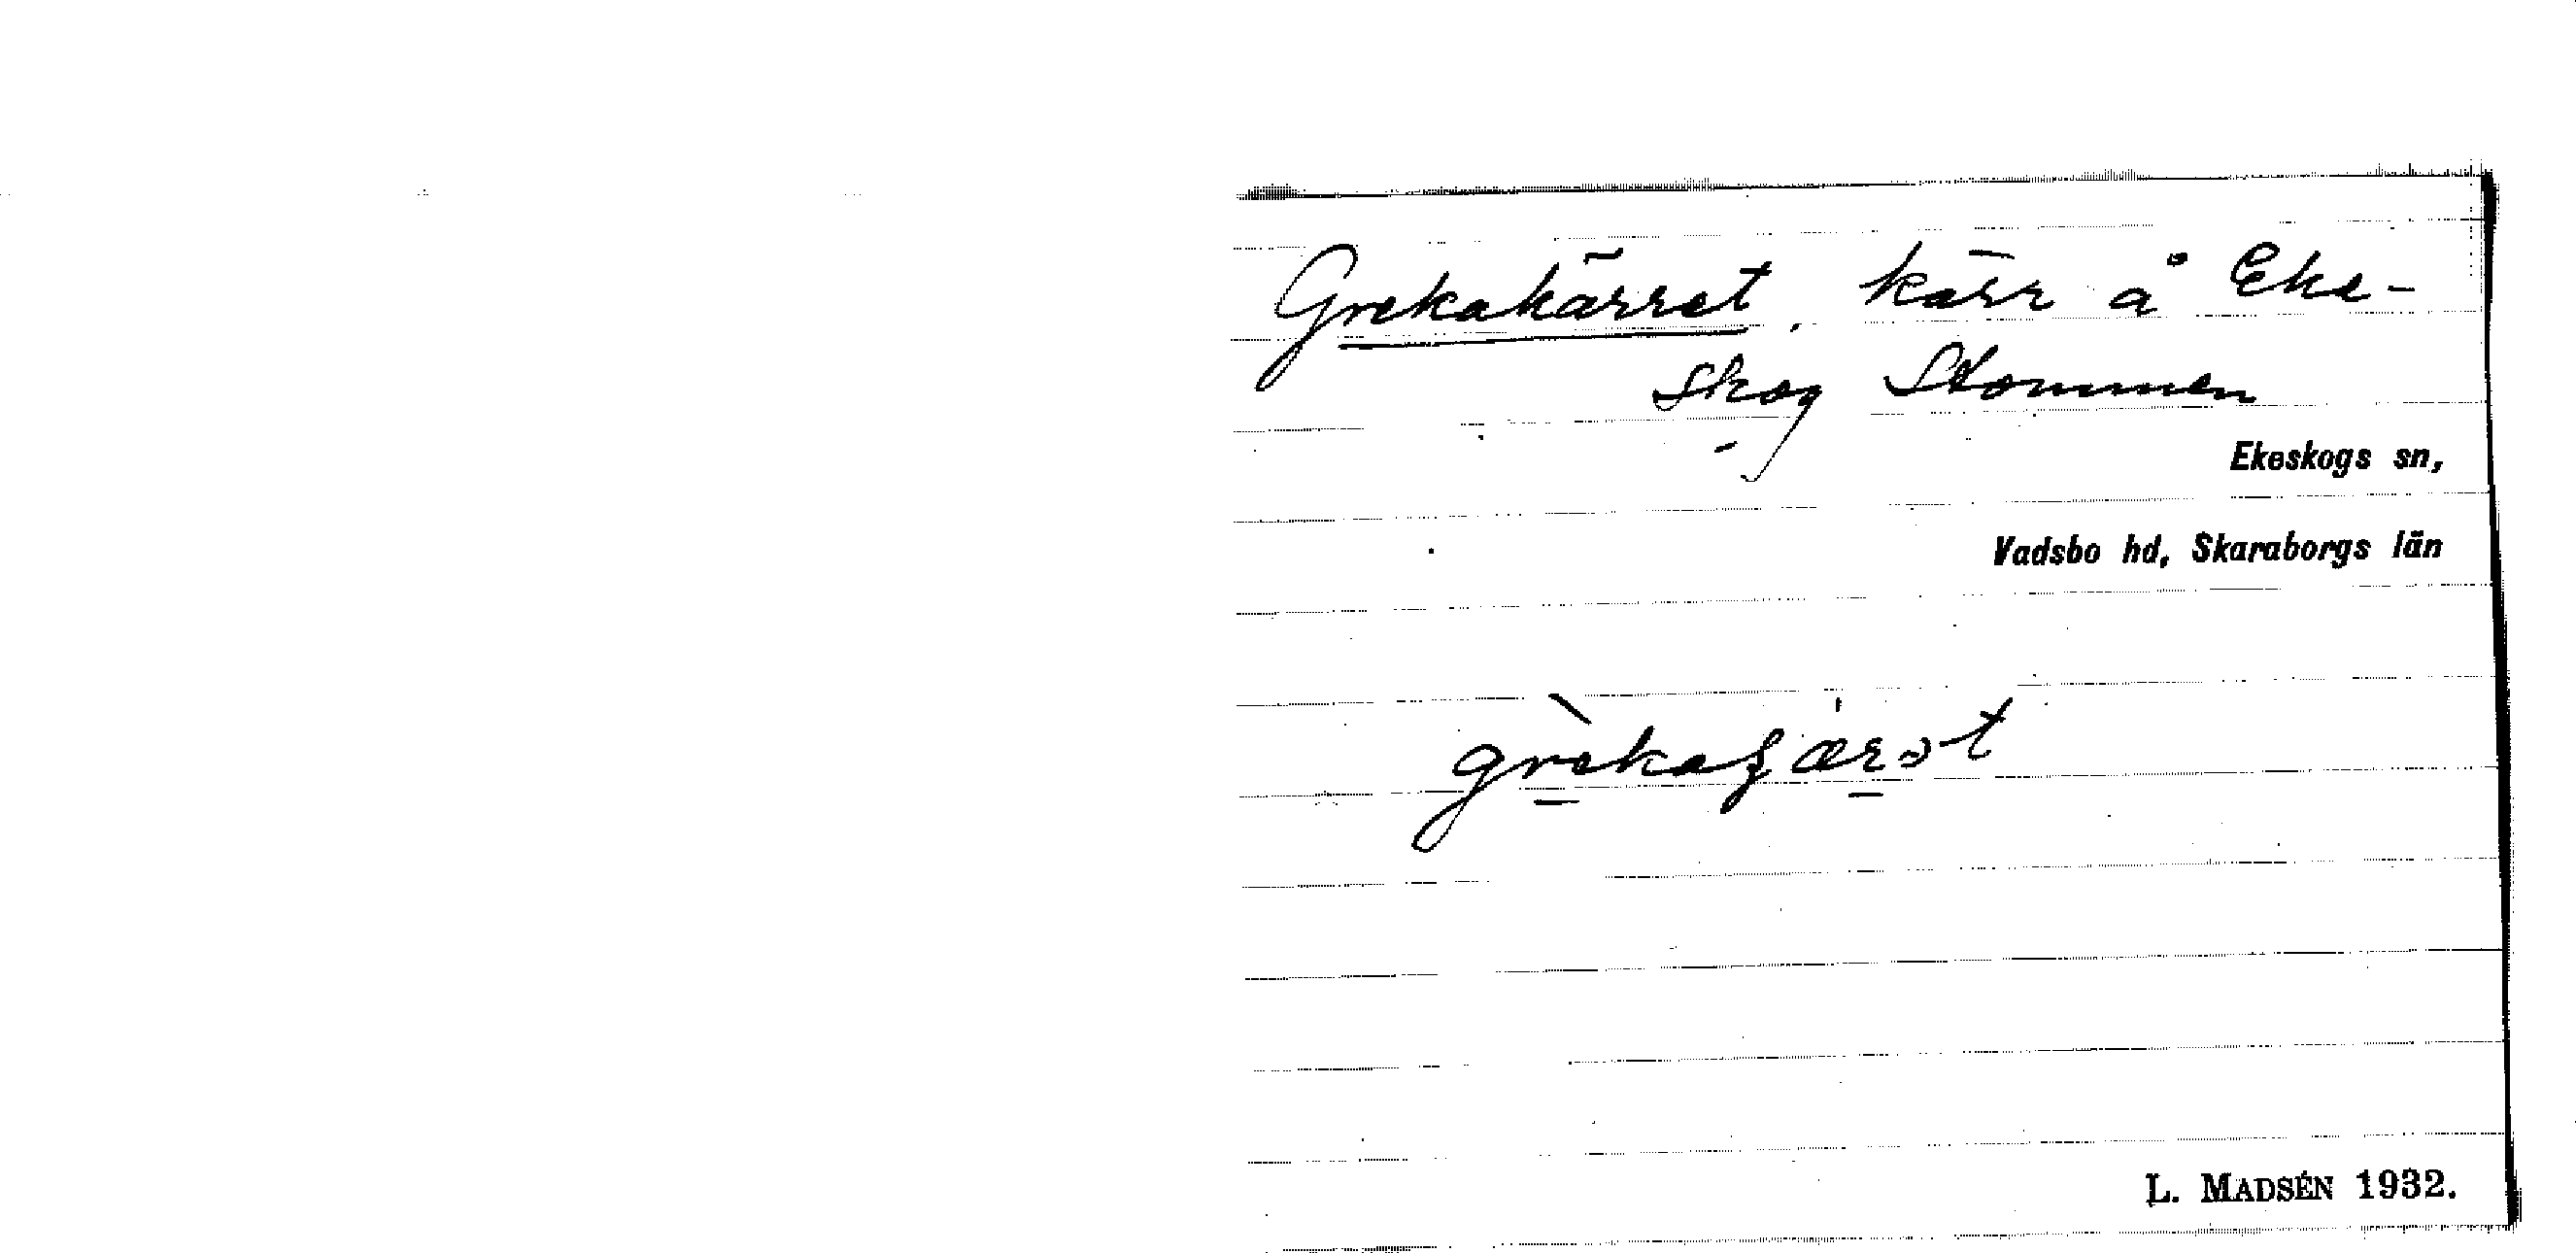 Grekakärret, kärr å Eke-
skog Stommen
Ekeskogs sn,
Vadsbo hd, Skaraborgs län
L. MADSÉN 1932.